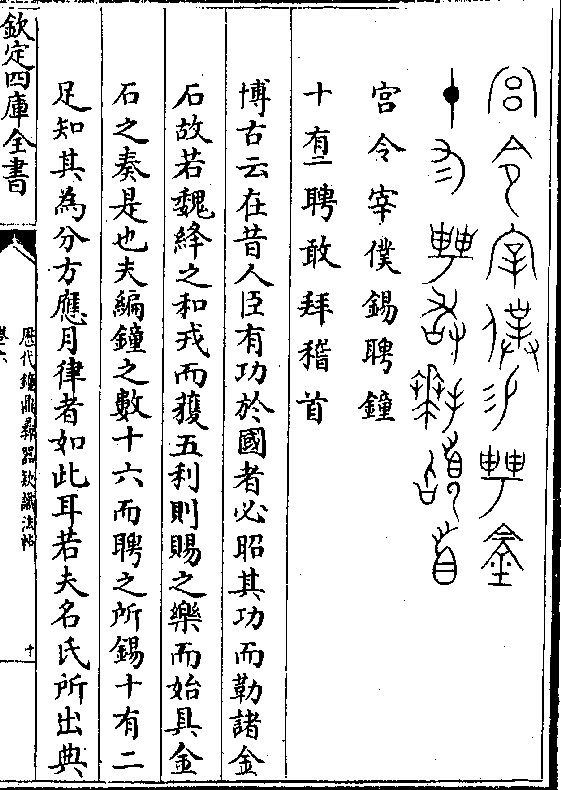 宫令宰僕錫聘鐘
十有二聘敢拜稽首
博古云在昔人臣有功於國者必昭其功而勒諸金
石故若魏絳之和戎而獲五利則賜之樂而始具金
石之奏是也夫編鐘之數十六而聘之所錫十有二
足知其為分方應月律者如此耳若夫名氏所出典
欽定四庫全書
歴代鐘鼎彞器欵識法帖
卷六
十